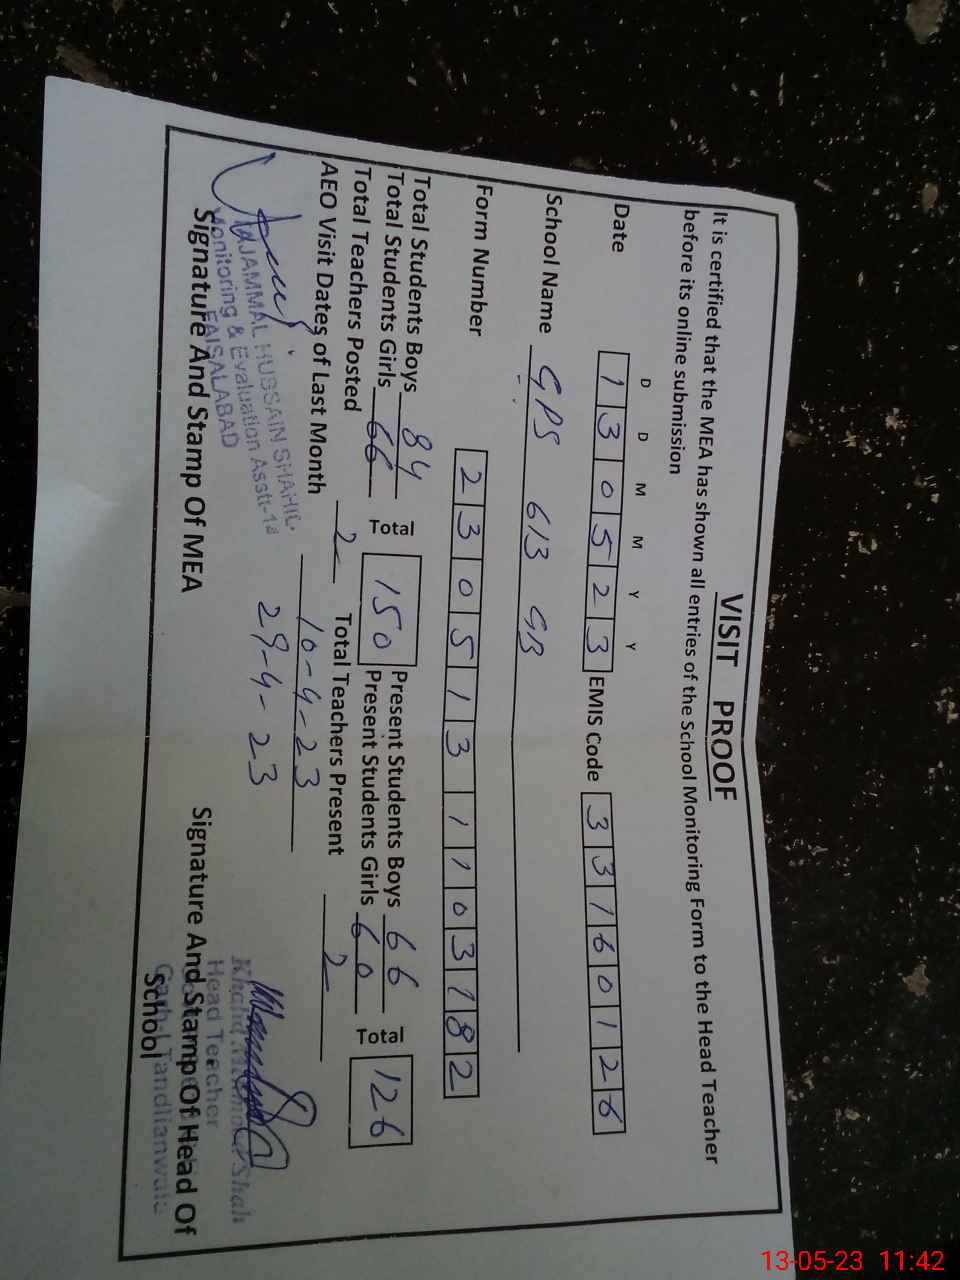 VISIT PROOF
It is certified that the MEA has shown all entries of the School Monitoring Form to the Head Teacher
before its online submission
D D M M Y Y
Date 1 3 0 5 2 3 EMIS Code 3 3 1 6 0 1 2 6
School Name GPS 613 GB
Form Number 2 3 0 5 1 3 1 1 0 3 1 8 2
Total Students Boys 84 Total 150 Present Students Boys 66 Total 126
Total Students Girls 66 Present Students Girls 60
Total Teachers Posted 2 Total Teachers Present 2
AEO Visit Dates of Last Month 10-4-23
29-4-23
TAJAMMAL HUSSAIN
Monitoring & Evaluation Asstt-14
FAISALABAD
Signature And Stamp Of MEA
Head Teacher
Tandlianwala
Signature And Stamp Of Head Of
School
13-05-23 11:42